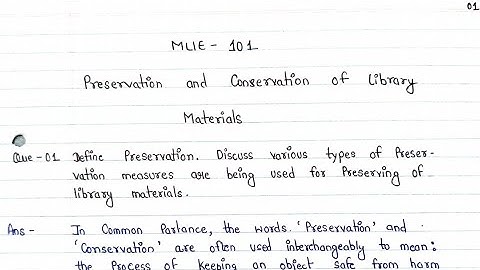 01
MLIE - 101
Preservation and Conservation of Library
Materials
Que-01 Define Preservation. Discuss various types of Preser-
vation measures are being used for Preserving of
library materials.
Ans - In Common Parlance, the words 'Preservation' and
'Conservation' are often used interchangeably to mean:
the Process of keeping an object safe from harm